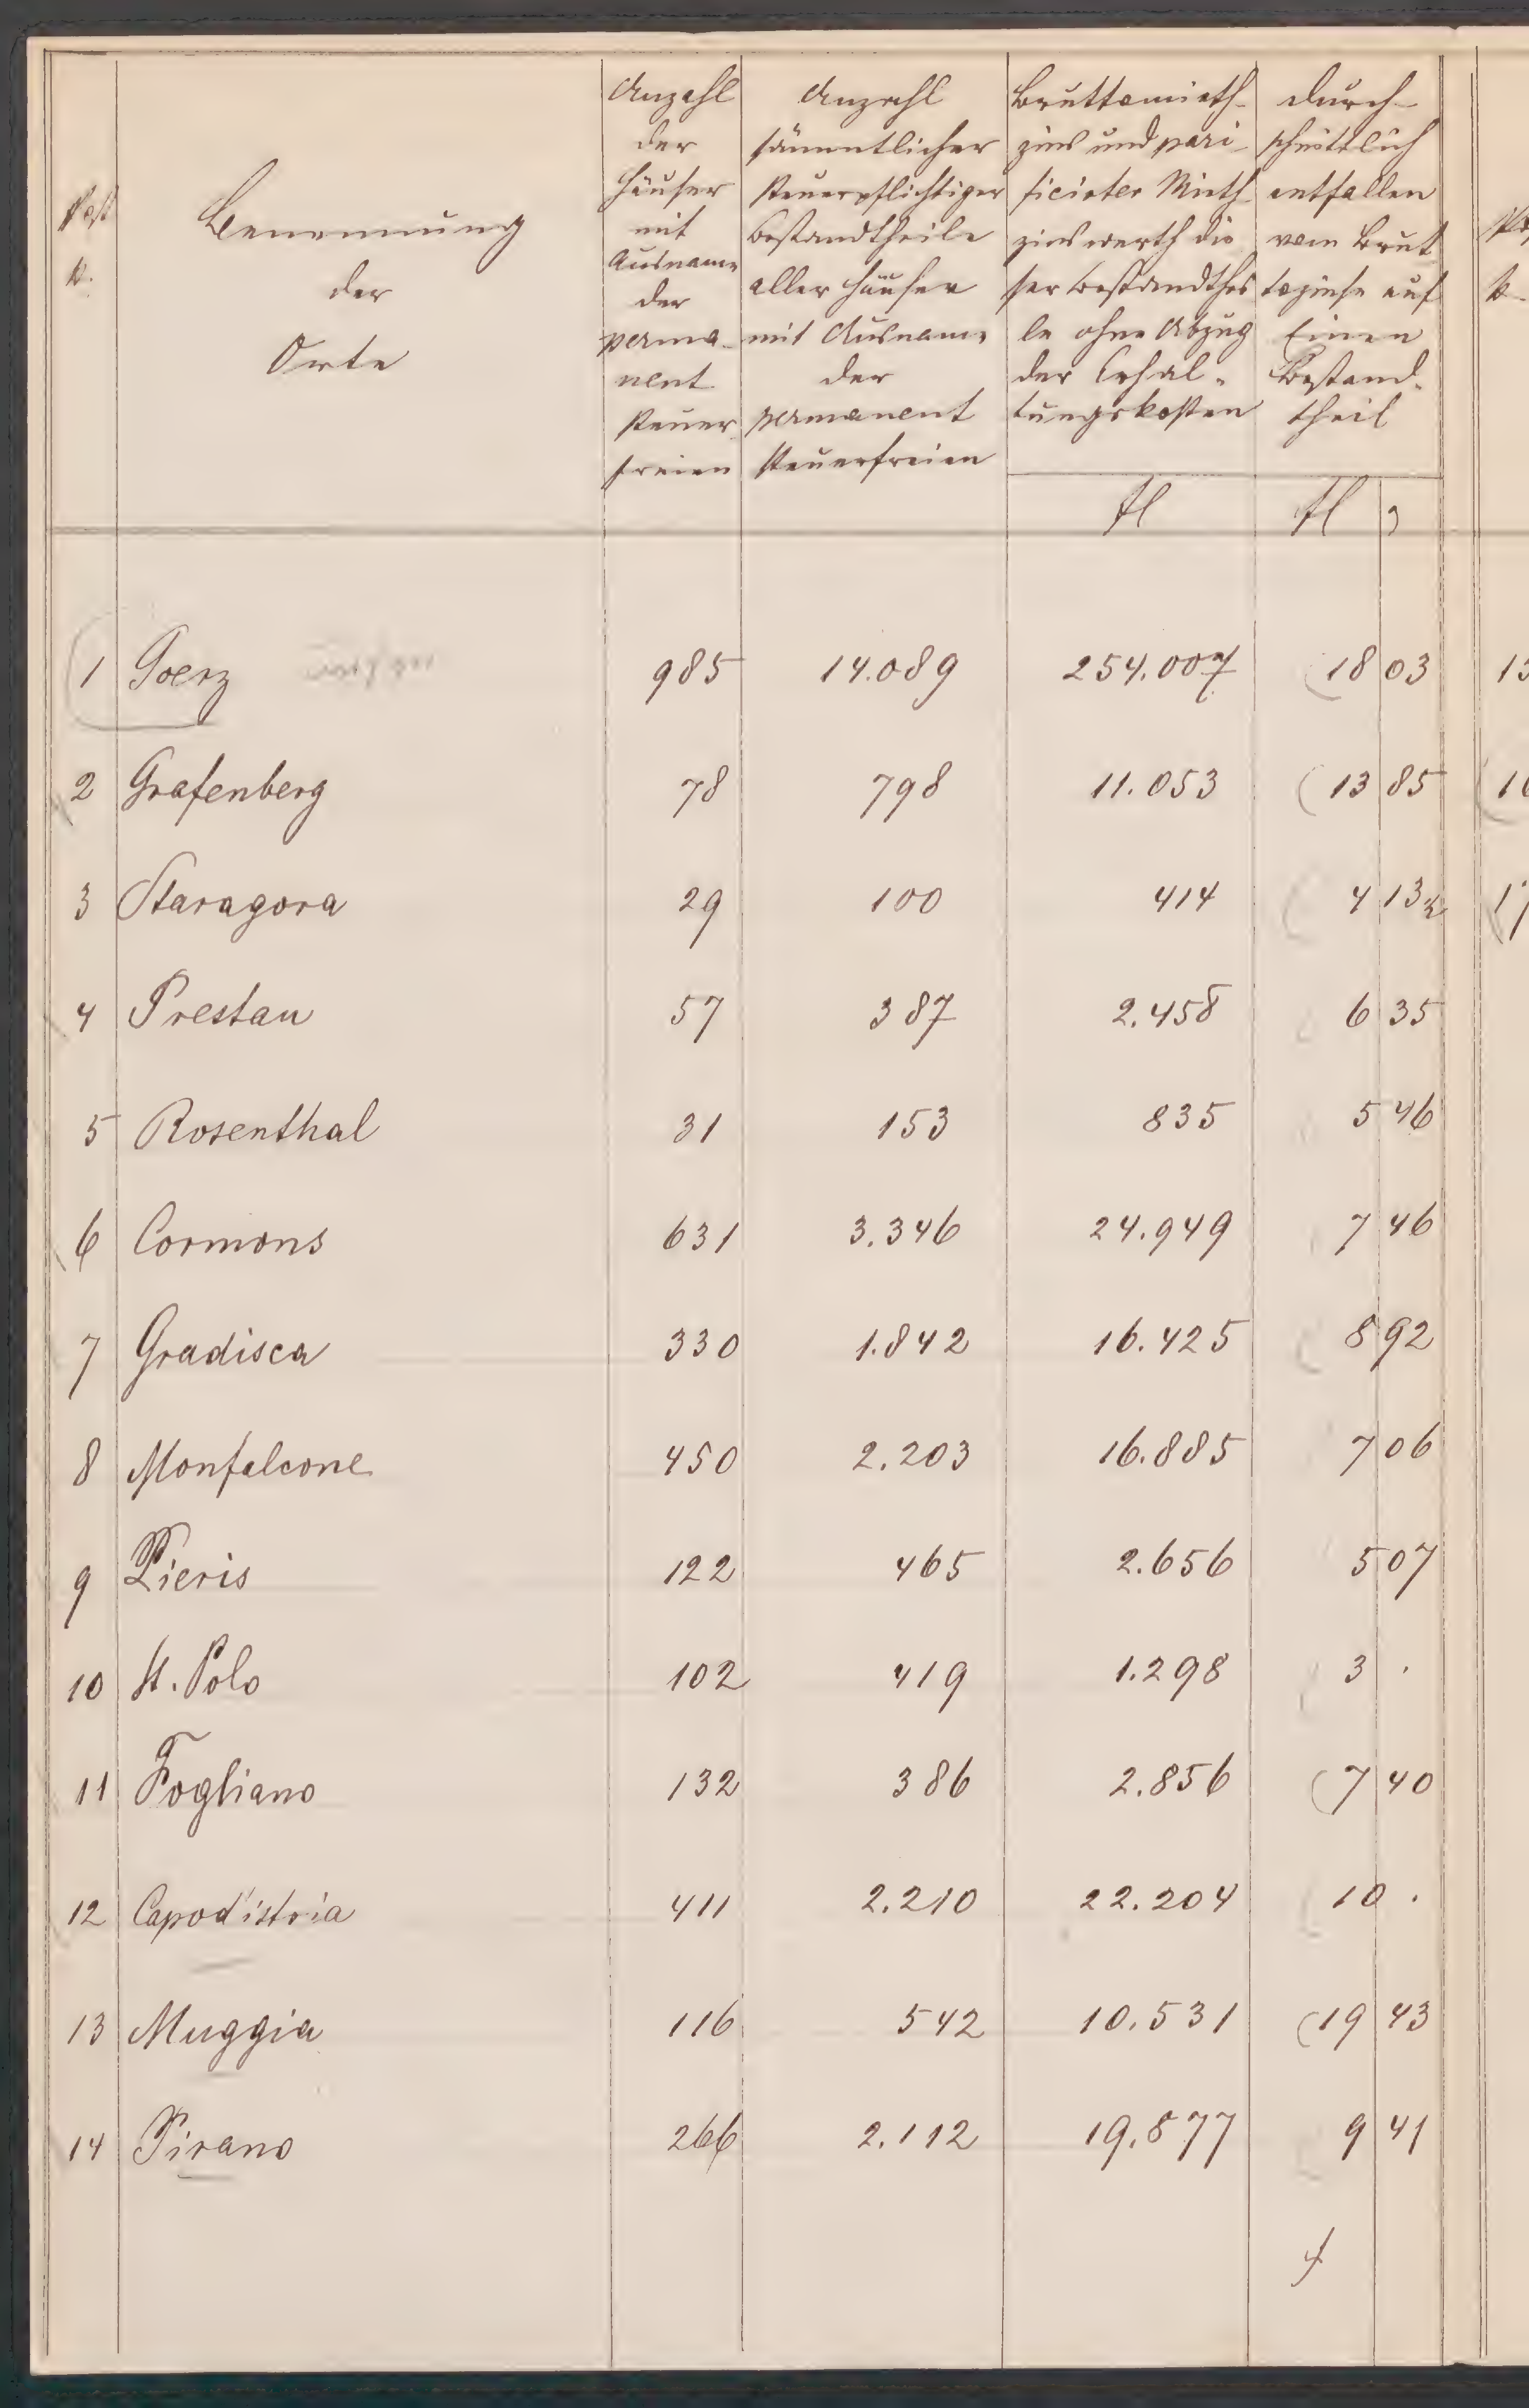 Post
N.
Benennung
der
Orte
Anzahl
der
Häuser
mit
Ausname
der
perma-
nent
steuer
freien
Anzahl
sämmtlicher
steuerpflichtiger
Bestandtheile
aller Häuser
mit Ausname
der
permanent
steuerfreien
Bruttomieth-
zins und pari-
ficirter Mieth-
zinswerth die
ser Bestandthei
le ohne Abzug
der Erhal-
tungskosten
fl
durch-
schnittlich
entfallen
vom Brut
tozinse auf
Einen
Bestand-
theil
fl
1 Goerz 985 14.089 254.007 18 03
2 Grafenberg 78 798 11.053 13 85
3 Staragora 29 100 414 4 13½
4 Prestau 57 387 2.458 6 35
5 Rosenthal 31 153 835 5 46
6 Cormons 631 3.346 24.949 7 46
7 Gradisca 330 1.842 16.425 8 92
8 Monfalcone 450 2.203 16.885 7 06
9 Pieris 122 465 2.656 5 07
10 St. Polo 102 419 1.298 3 .
11 Fogliano 132 386 2.856 7 40
12 Capod'istria 411 2.210 22.204 10 .
13 Muggia 116 542 10.531 19 43
14 Pirano 266 2.112 19.877 9 41